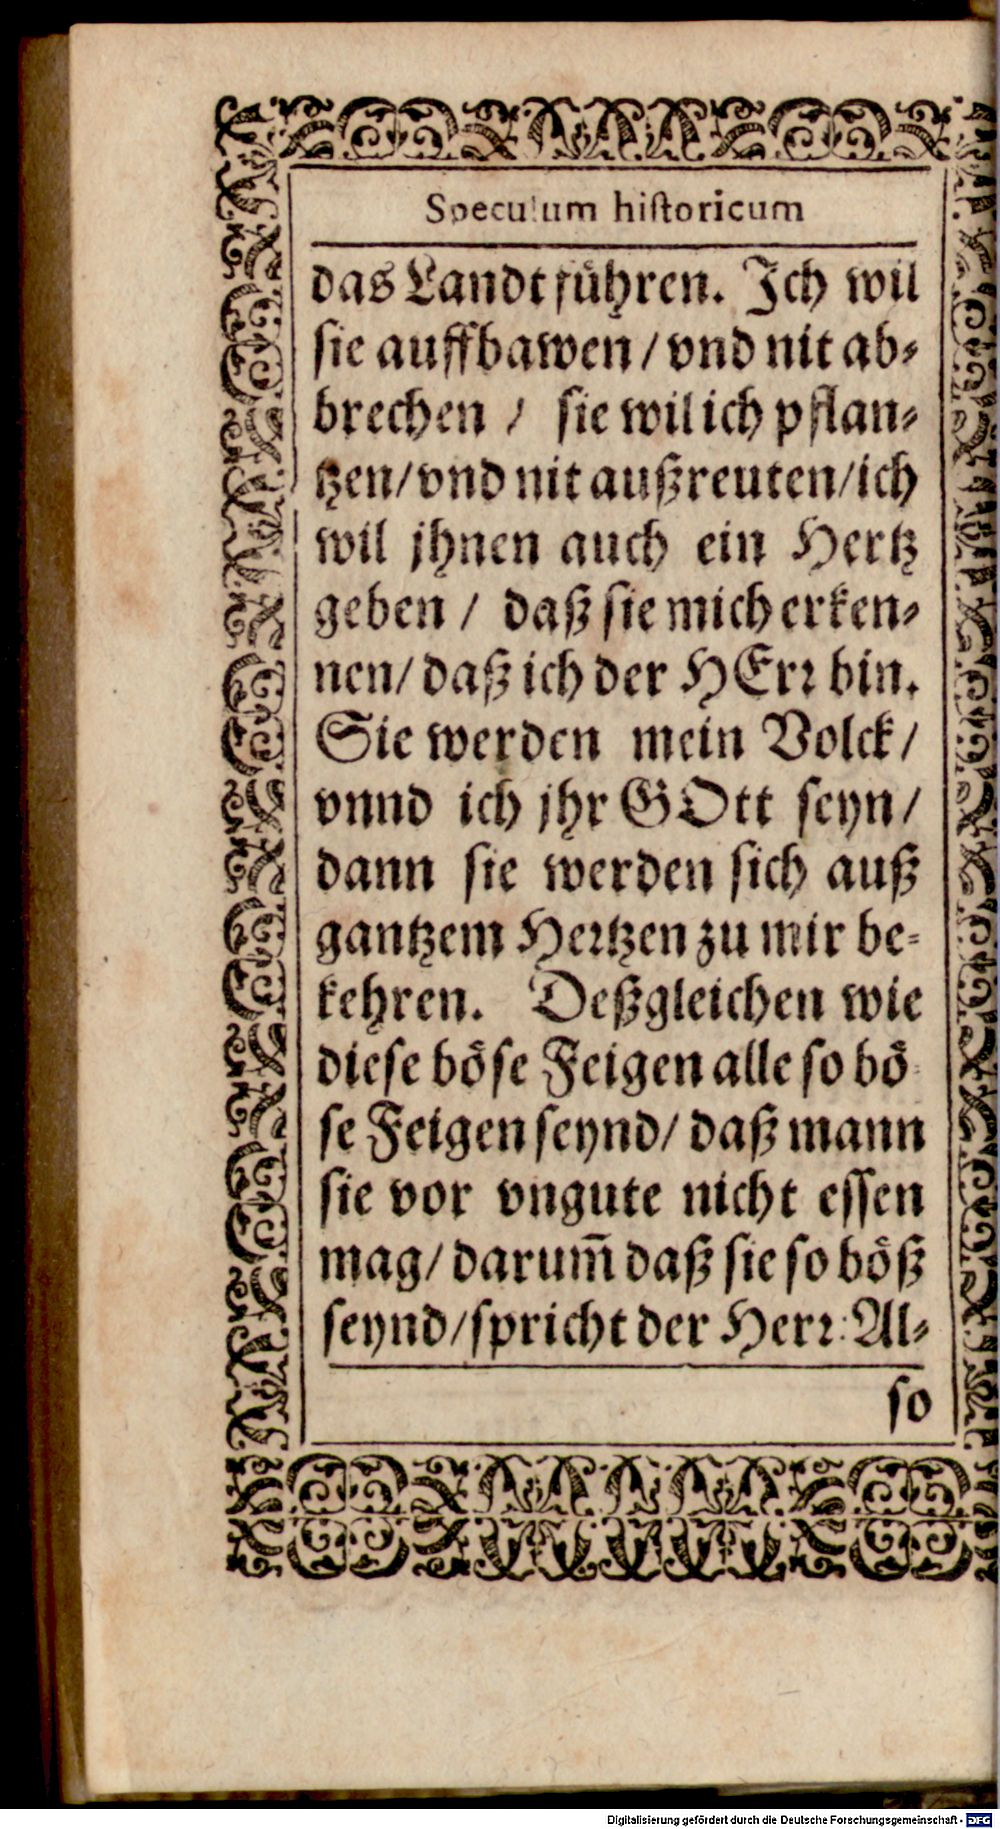 Speculum historicum
das Landt führen. Ich wil
sie auffbawen / vnd nit ab⸗
brechen / sie wil ich pflan⸗
tzen / vnd nit außreuten / ich
wil jhnen auch ein Hertz
geben / daß sie mich erken⸗
nen / daß ich der HErr bin.
Sie werden mein Volck /
vnnd ich jhr GOtt seyn /
dann sie werden sich auß
gantzem Hertzen zu mir be⸗
kehren. Deßgleichen wie
diese böse Feigen alle so bö⸗
se Feigen seynd / daß mann
sie vor vngute nicht essen
mag / darum̄ daß sie so böß
seynd / spricht der Herr: Al⸗
so
Digitalisierung gefördert durch die Deutsche Forschungsgemeinschaft - DFG